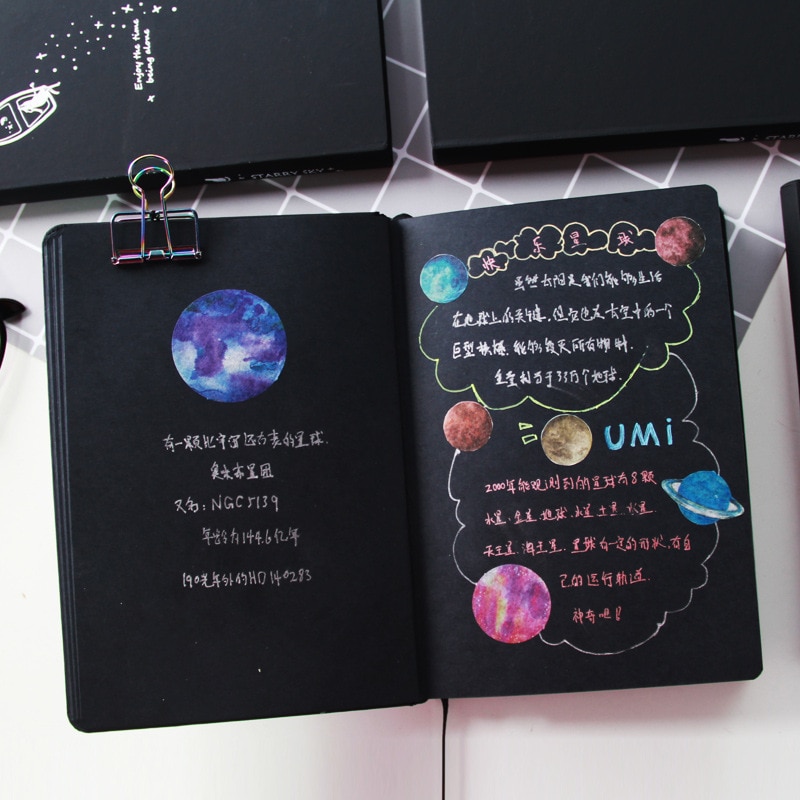 Enjoy the time
being alone
STARRY SKY
有一颗比宇宙还古老的星球.
又名: NGC 5139
年龄为144.6亿年
190光年外的HD 140283
快乐星球
虽然太阳是我们能够生活
在地球上的关键, 但它也是太空中的一个
巨型
重量相当于33万个地球.
UMi
2000年能观测到的星球有8颗
水星. 金星. 地球. 火星 土星. 木星.
天王星. 海王星. 星球有一定的形状, 有自
己的运行轨道.
神奇吧!!